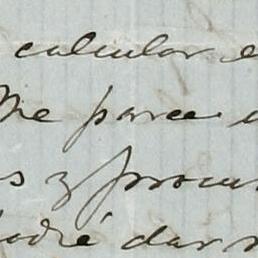 calcular e
Me parece
s y procu
podré dar